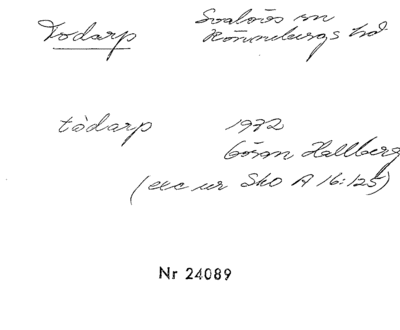 Todarp Svalövs sn
Rönnebergs hd
tòdarp 1972
Göran Hallberg
(exc ur Sko A 16:125)
Nr 24089